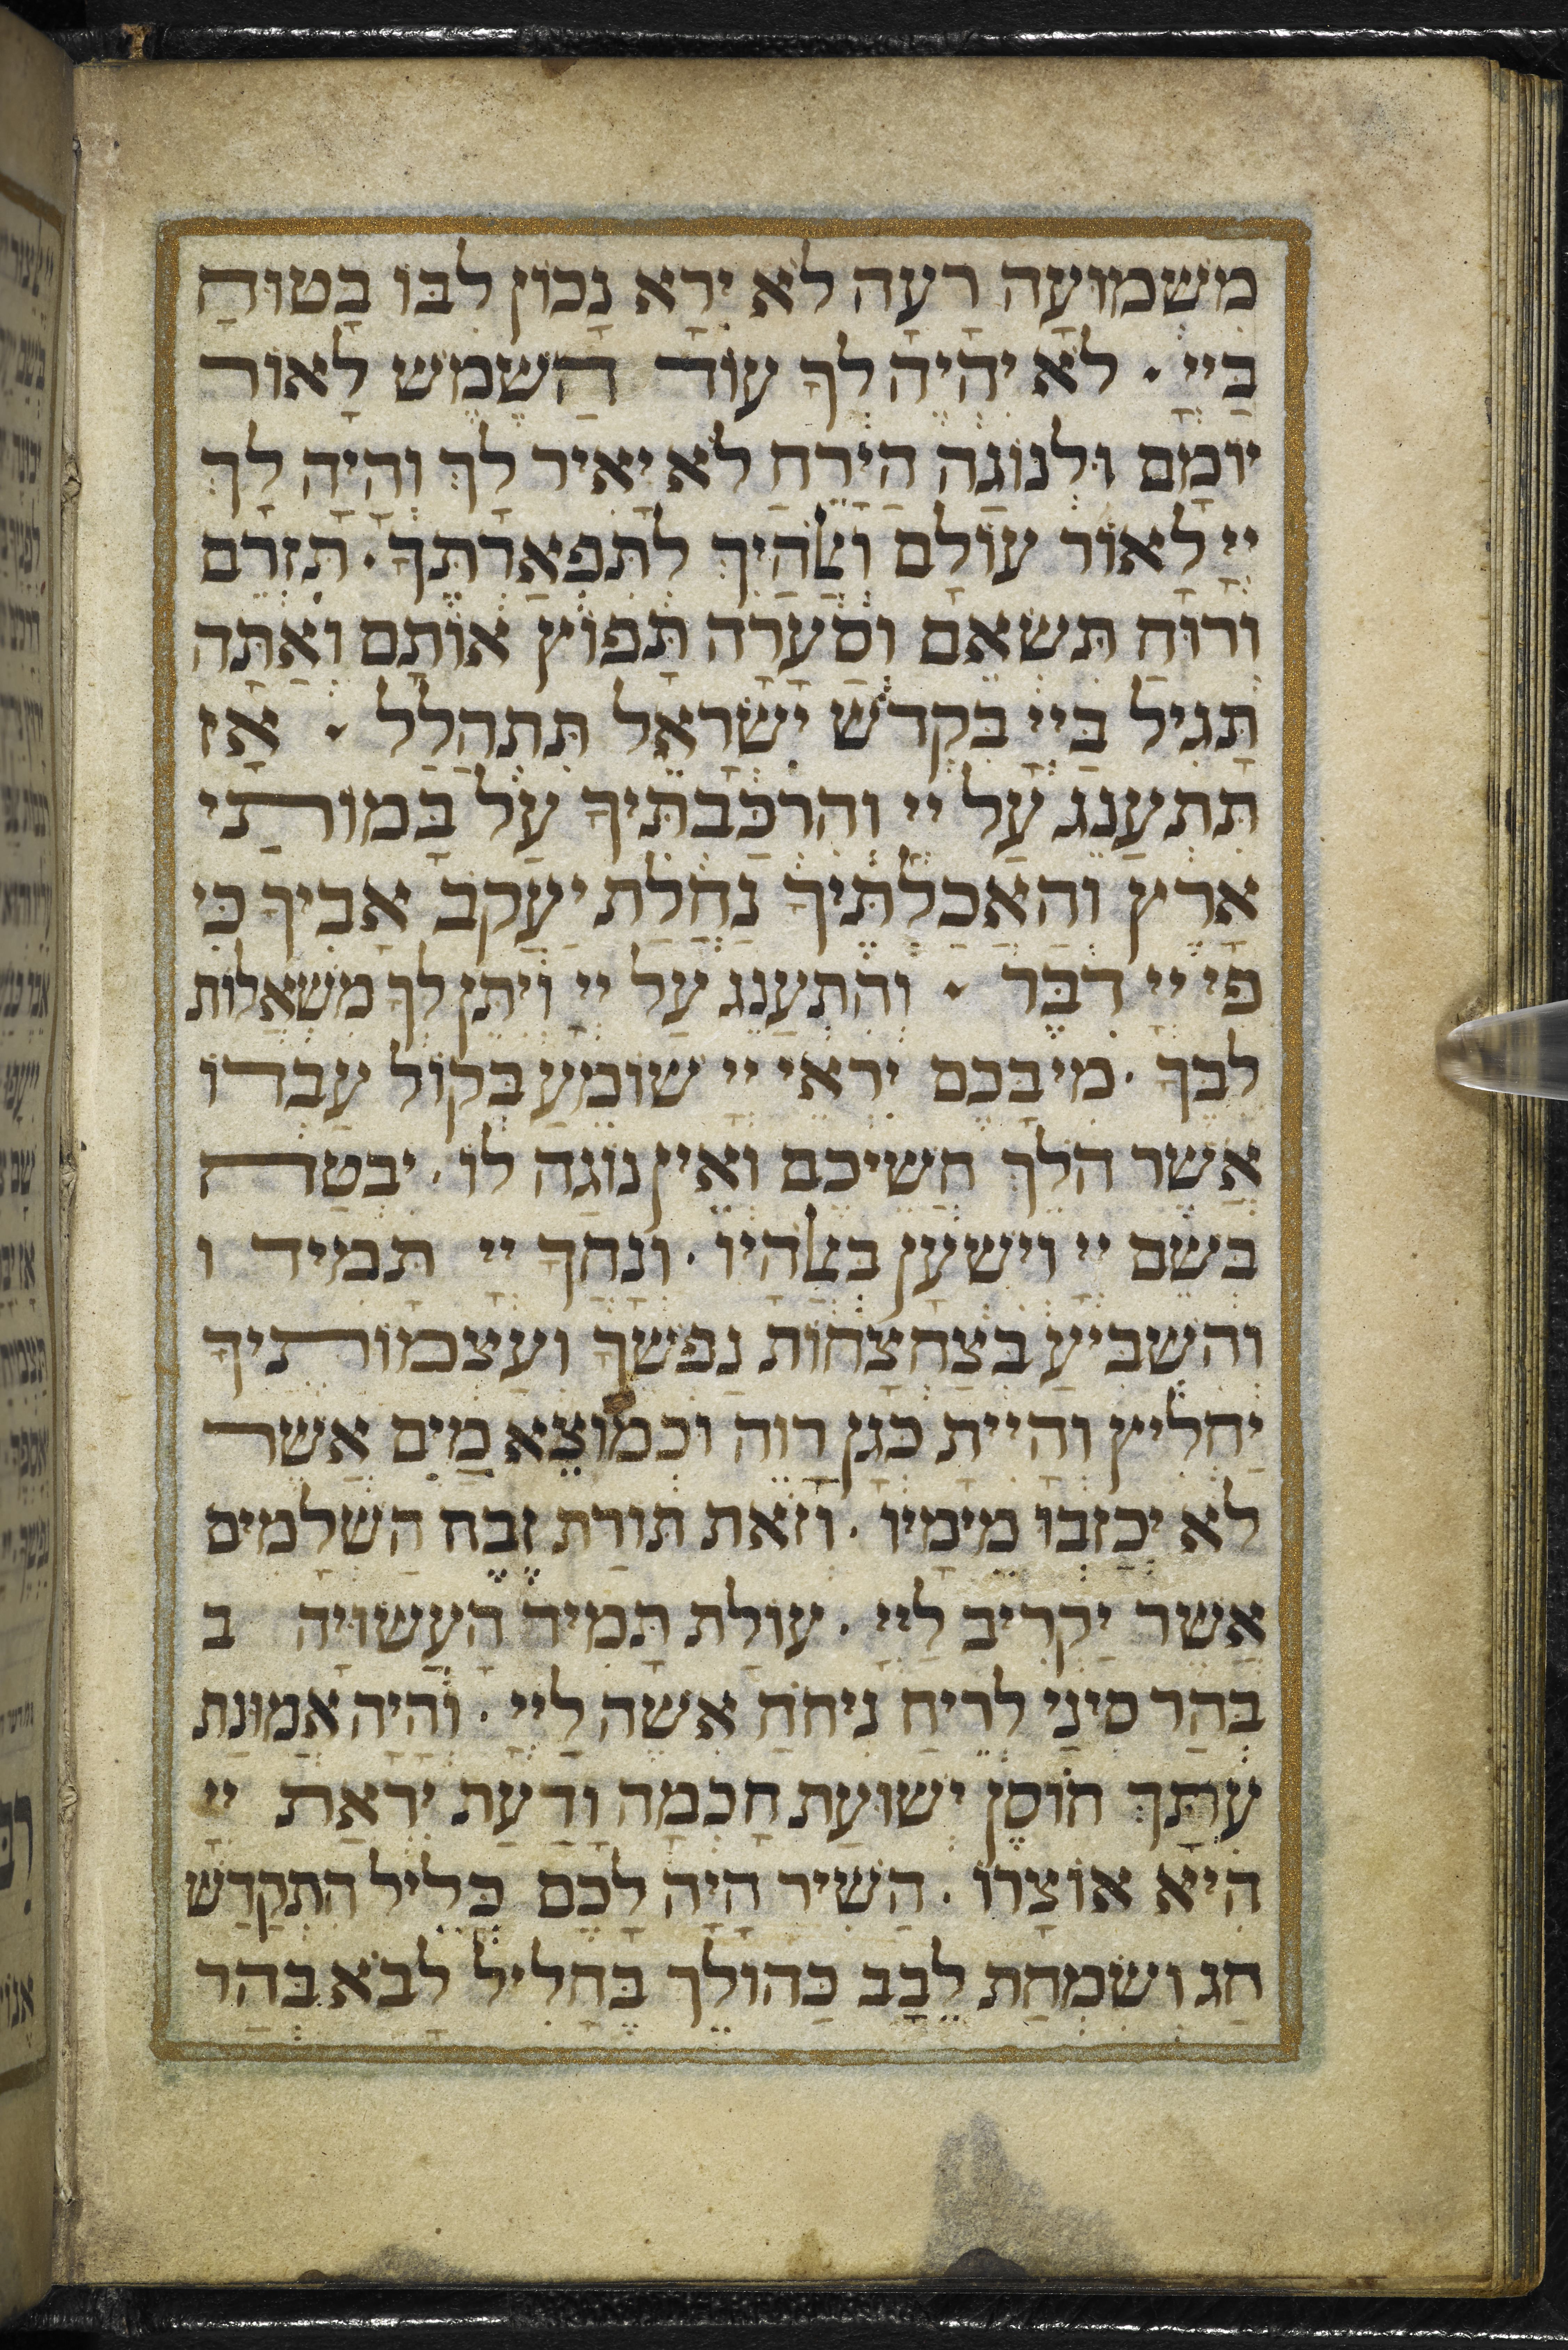 משמועה רעה לא ירא נכון לבו בטוח
ביי . לא יהיה לך עוד השמש לאור
יומם ולנוגה הירח לא יאיר לך והיה לך
יי לאור עולם ואלהיך לתפארתך . תזרם
ורוח תשאם וסערה תפוץ אותם ואתה
תגיל ביי בקדש ישראל תתהלל . אז
תתענג על יי והרכבתיך על במותי
ארץ והאכלתיך נחלת יעקב אביך כי
פי יי דבר . והתענג על יי ויתן לך משאלות
לבך . מי בכם ירא יי שומע בקול עבדו
אשר הלך חשיכם ואין נוגה לו . יבטח
בשם יי וישען באלהיו . ונחך יי תמיד ו
והשביע בצחצחות נפשך ועצמותיך
יחליץ והיית כגן רוה וכמוצא מים אשר
לא יכזבו מימיו . וזאת תורת זבח השלמים
אשר יקריב ליי . עולת תמיד העשויה ב
בהר סיני לריח ניחח אשה ליי . והיה אמונת
עתך חוסן ישועת חכמה ודעת יראת יי
היא אוצרו . השיר היה לכם כליל התקדש
חג ושמחת לבב כהולך בחליל לבא בהר